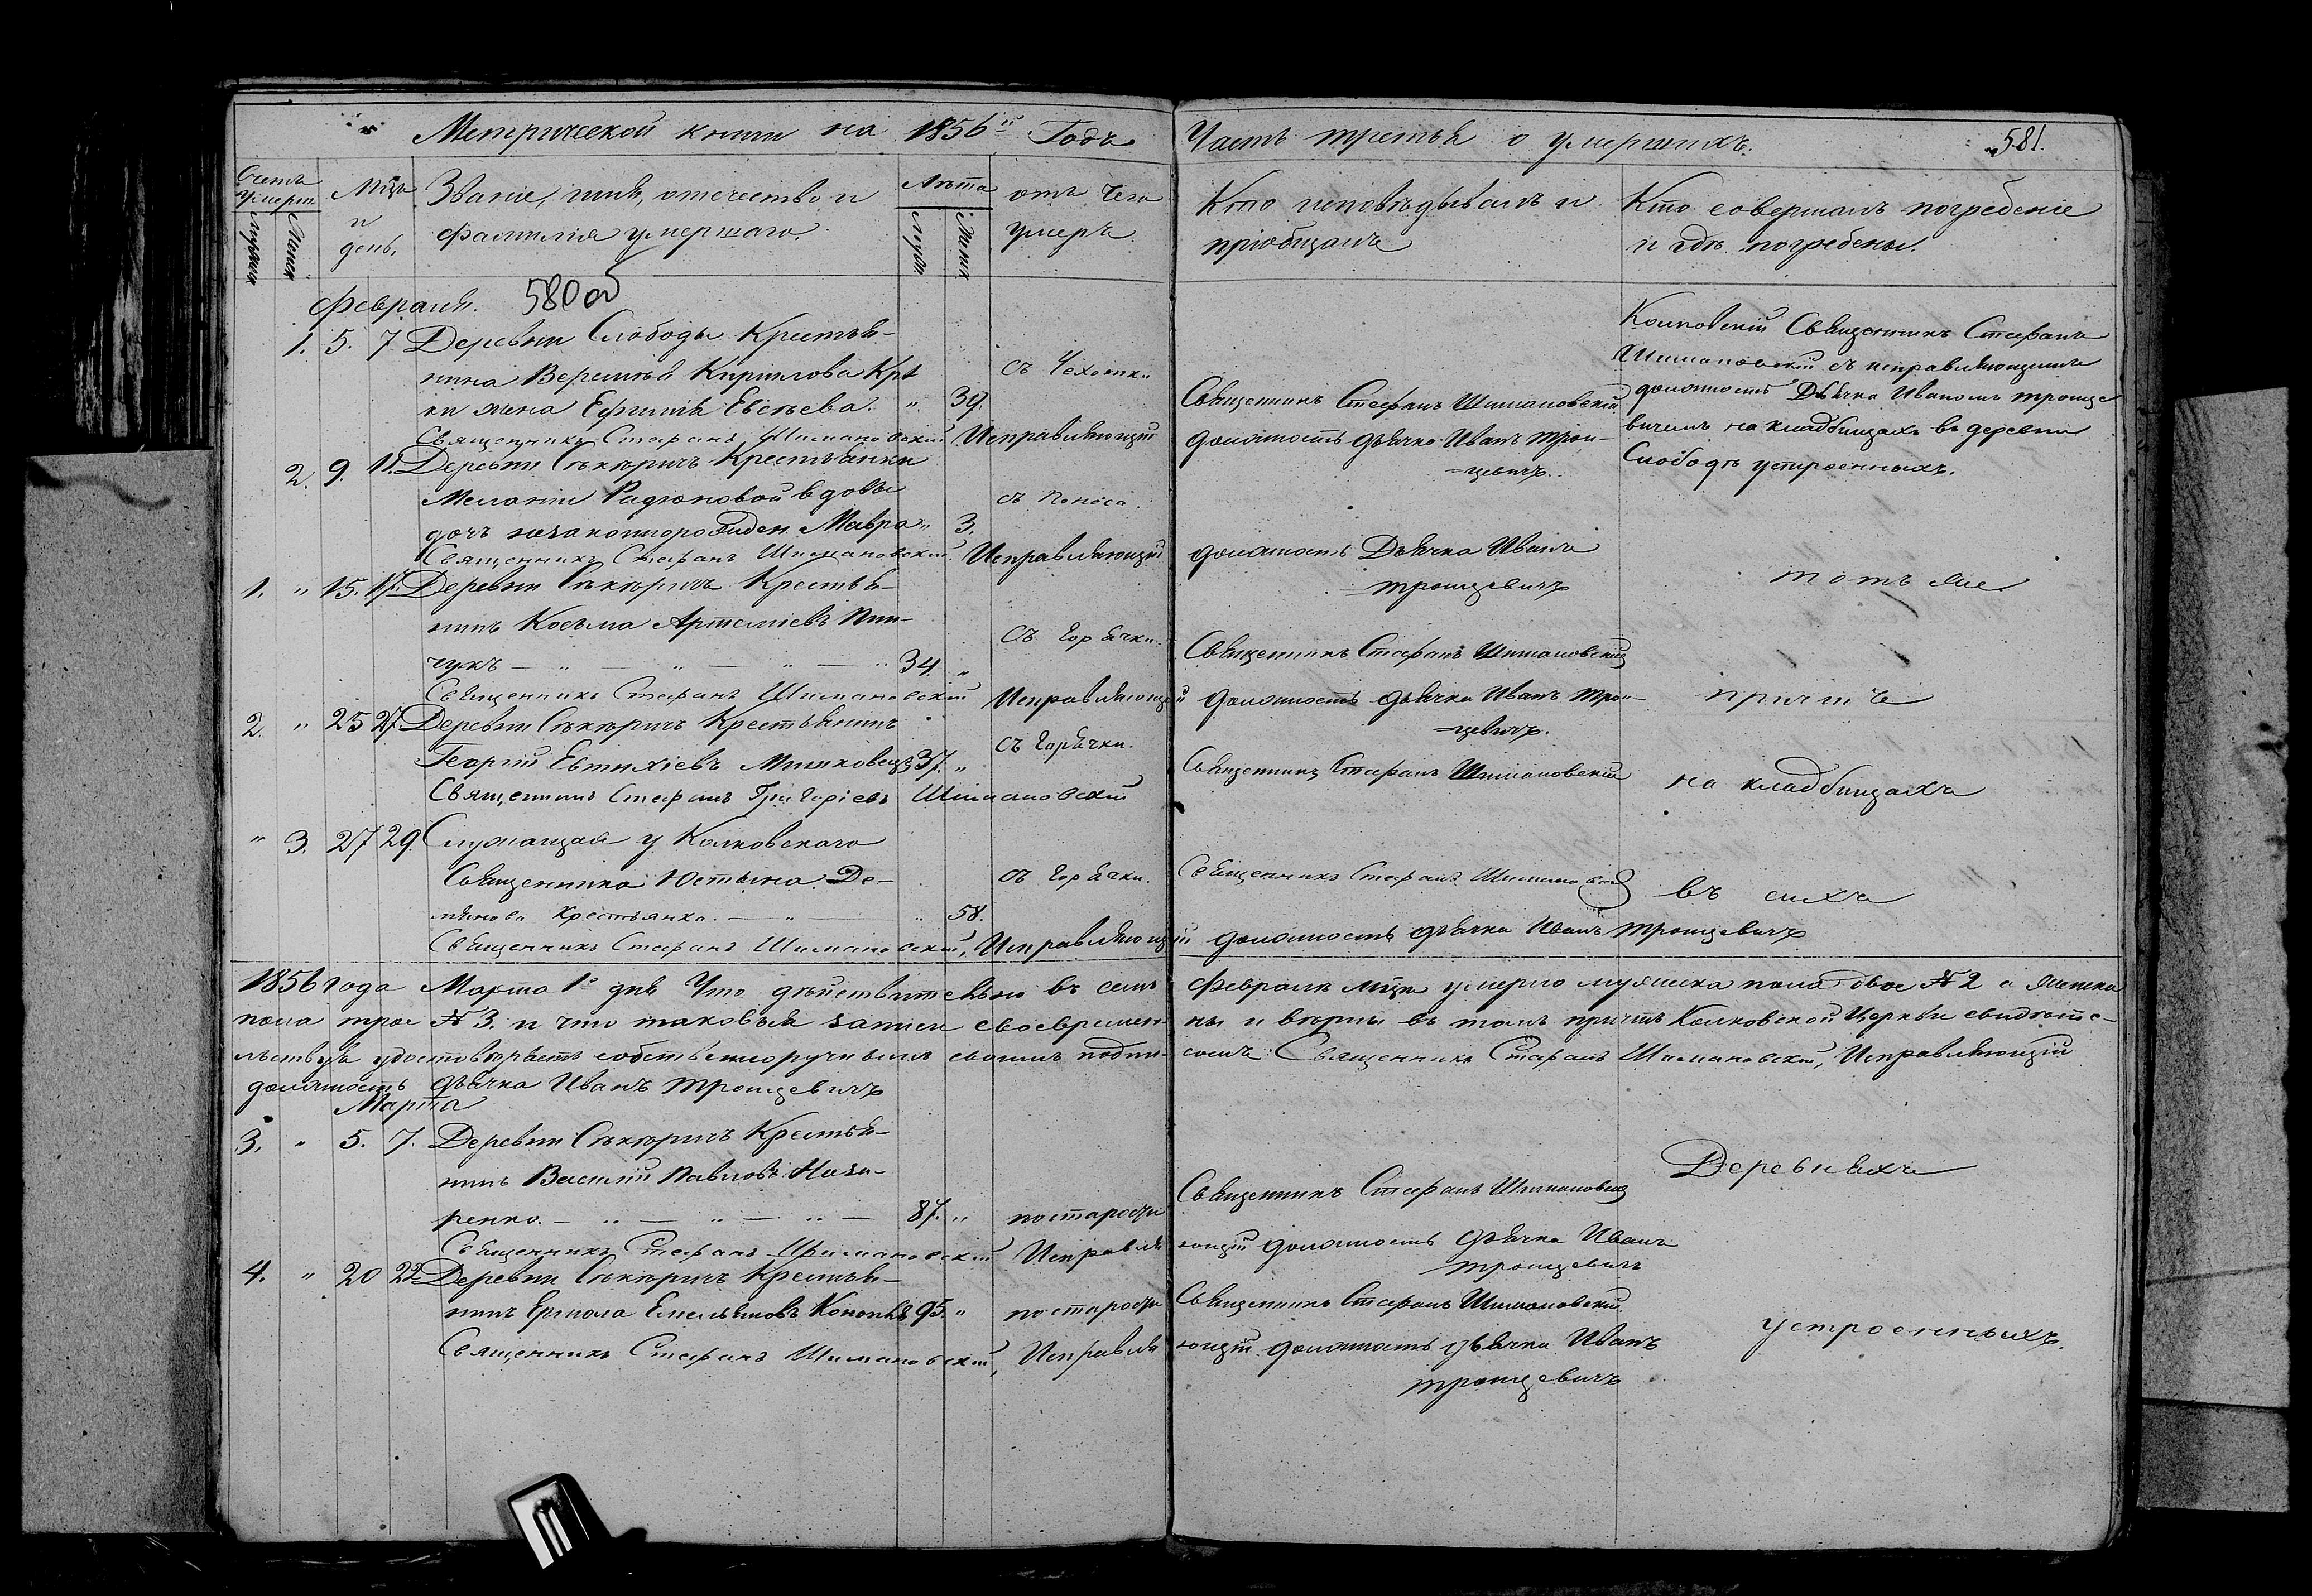 Метрической книги на 1856й Годъ
Часть третья о умершихъ.
581.
Счетъ умерш.
Мужск
Женск
Мцъ и день.
Званіе, имя, отечество и
фамилія умершаго.
Лѣта
Мужс
Женск
отъ чего
умеръ.
Кто исповѣдывалъ и
пріобщалъ
Кто совершалъ погребеніе
и гдѣ погребены.
Февраля. 580 об
1. 5. 7 Деревни Слободы Крестья-
нина Веремѣя Кирилова
ки жена Ефимія Евсѣева. " 39.
съ Чехотки
Священникъ Стефанъ Шимановскій Исправляющій
Священникъ Стефанъ Шимановскій
должность дьячка Иванъ Трои-
=цевичъ.
Колковскій Священникъ Стефанъ
Шимановскій съ исправляющимъ
должность Дьячка Иваномъ Троице
вичемъ на кладбищахъ въ деревни
Слободѣ устроенныхъ.
2. 9. 11. Деревни Сѣкѣричъ Крестьянки
Меланіи Радіоновой вдовы
дочъ незаконнорожден. Мавра " 3.
съ Поноса.
Священникъ Стефанъ Шимановскій Исправляющій
должность Дьячка Иванъ
=Троицевичъ
тотъ же
1. " 15. 17. Деревни Сѣкѣричъ Крестья-
нинъ Косьма Артеміевъ Пин-
чукъ — " — " — " — " 34. "
съ Горячки.
Священникъ Стефанъ Шимановскій
Священникъ Стефанъ Шимановскій Исправляющій
должность дьячка Иванъ Трои-
=цевичъ.
причтъ
2. " 25 27 Деревни Сѣкѣричъ Крестьянинъ
Георгій Евтихіевъ 37. "
съ Горячки.
Священникъ Стефанъ Шимановскій
Священникъ Стефанъ Григоріевъ Шимановскій
на кладбищахъ
" 3. 27 29. Служащая у Колковскаго
Священника Юстына Де-
мянова Крестьянка. — " — " 58.
съ Горячки.
Священникъ Стефанъ Шимановскій
въ сихъ
Священникъ Стефанъ Шимановскій, Исправляющій должность дьячка Иванъ Троицевичъ
1856 года Марта 1го дня Что дѣйствительно въ семъ Февралѣ мцѣ умерло мужеска пола двое № 2 а женска
пола трое № 3. и что таковыя записи своевремен- ны и вѣрны въ томъ причтъ Колковской Церкви свидѣте-
льствуя удостовѣряетъ собственноручнымъ своимъ подпи- сомъ: Священникъ Стефанъ Шимановскій, Исправляющій
должность дьячка Иванъ Троицевичъ
Марта
3. " 5. 7. Деревни Сѣкѣричъ Крестья-
нинъ Василій Павловъ Наза-
ренко. — " — " — " — 87. "
по старости
Священникъ Стефанъ Шимановскій
Деревняхъ
Священникъ Стефанъ Шимановскій Исправля ющій должность дьячка Иванъ
Троицевичъ
4. " 20 22 Деревни Сѣкѣричъ Крестья-
нинъ Ермола Емельяновъ 95. "
по старости
Священникъ Стефанъ Шимановскій
устроенныхъ.
Священникъ Стефанъ Шимановскій, Исправля ющій должность дьячка Иванъ
Троицевичъ